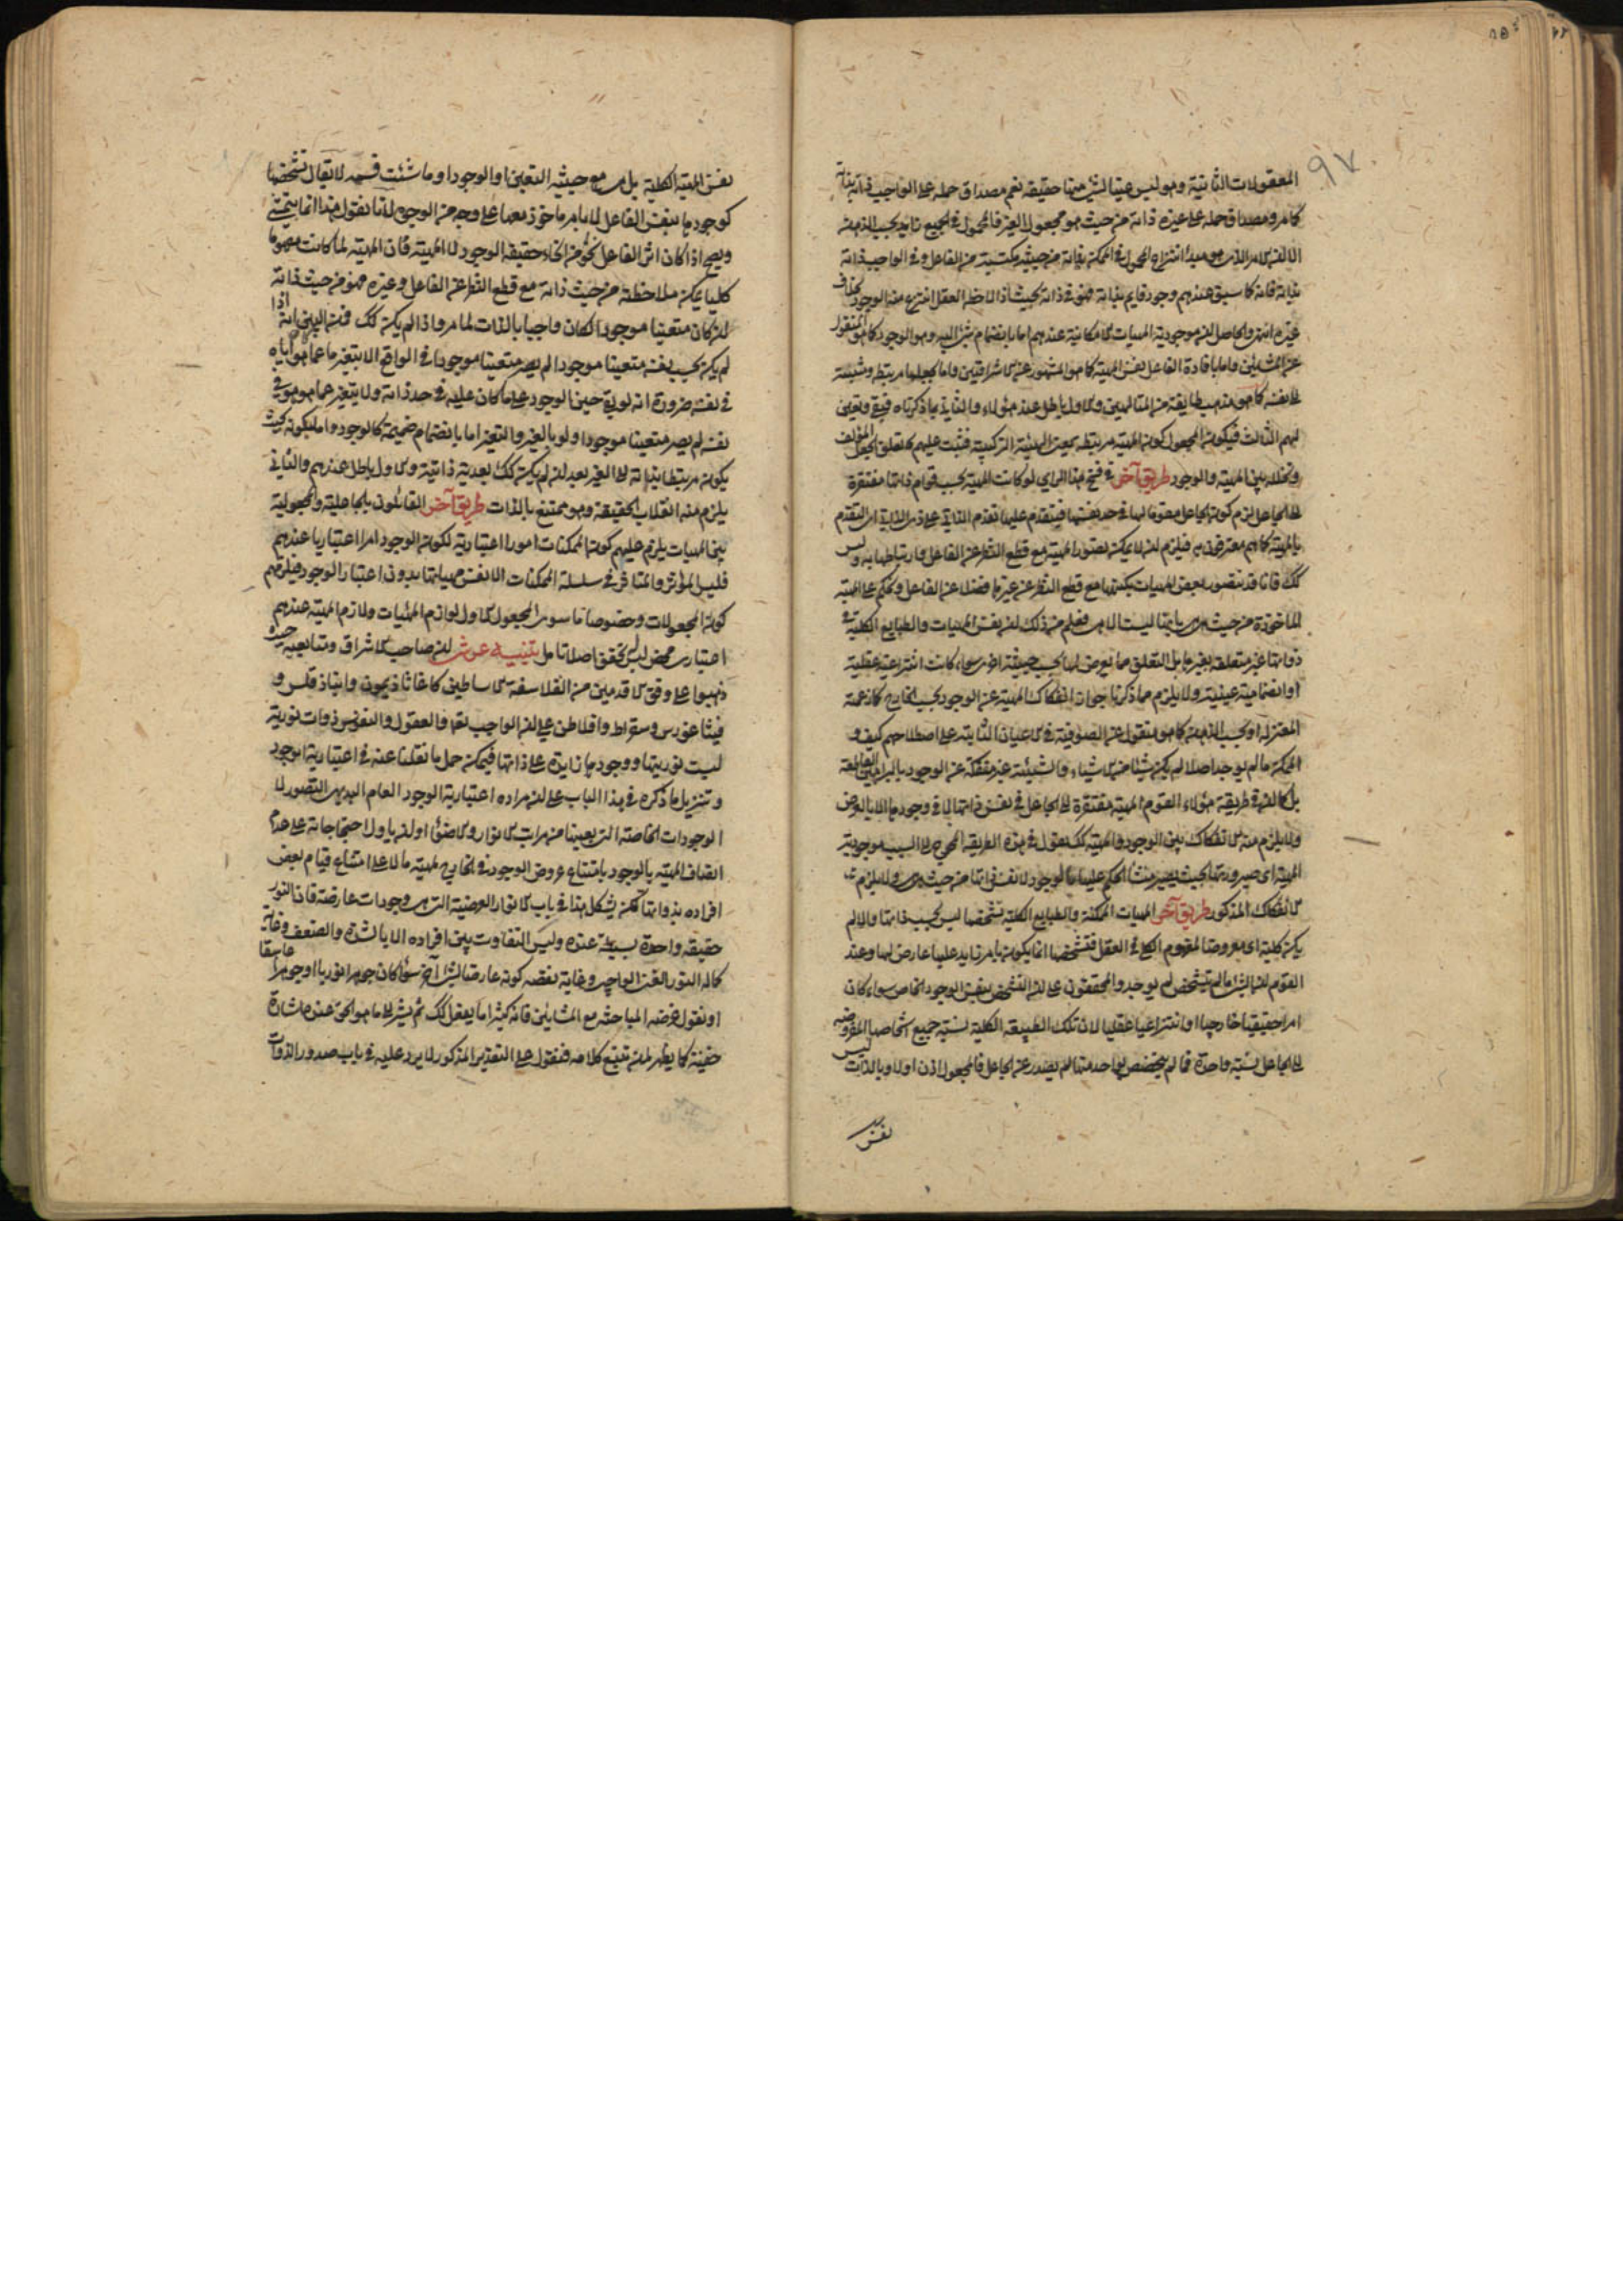 المعقولات الثانية وهو ليس عينا لشئ منها حقيقة نعم مصداق حمله على الواجب ذاته بذاته
كما مر ومصداق حمله على غيره ذاته من حيث هو مجعول الغير فالمحمول فى الجميع زايد بحسب الذهن
الا ان الامر الذى هو مبدأ انتزاع المحمول فى الممكن ذاته من حيثية مكتسبة من الفاعل وفى الواجب ذاته
بذاته فانه كما سبق عندهم وجود قايم بذاته فهو فى ذاته بحيث اذا لاحظه العقل انتزع منه الوجود بخلاف
غيره انتهى والحاصل ان موجودية المهيات الامكانية عندهم اما بانضمام شئ اليه وهو الوجود كما هو المنقول
عن المشائين واما بافادة الفاعل نفس المهية كما هو المشهور عن الاشراقيين واما بجعلها مرتبطة ومنتسبة
الى نفسه كما هو مذهب طايفة من المتالهين والاول باطل عند هؤلاء والثانى بما ذكرناه فبقى وتعين
لهم الثالث فيكون المجعول كون المهية مرتبطة بمعنى الهيئة التركيبية فثبت عليهم تعلق الجعل المؤلف
وتخلله بين المهية والوجود طريق آخر فى فسخ هذا الراى لو كانت المهية بحسب قوام ذاتها مفتقرة
الى الجاعل لزم كون الجاعل مقوما لها فى حد نفسها فيتقدم عليها تقدم الذاتى على ذى الذاتى اى التقدم
بالمهية كما هم معترفون به فيلزم ان لا يمكن تصور المهية مع قطع النظر عن الفاعل وارتباطها به وليس
كك فانا قد نتصور بعض المهيات بكنهها مع قطع النظر عن غيرها فضلا عن الفاعل ونحكم على المهية
الماخوذة من حيث هى بانها ليست الا هى فعلم من ذلك ان نفس المهيات والطبايع الكلية فى
ذواتها غير متعلقة بغيرها بل التعلق مما يعرض لها بحسب حيثية اخرى سواء كانت انتزاعية عقلية
او انضمامية عينية ولا يلزم مما ذكرنا جواز انفكاك المهية عن الوجود بحسب الخارج كما زعمته
المعتزلة او بحسب الذهن كما هو منقول عن الصوفية فى الاعيان الثابتة على اصطلاحهم كيف و
الممكن ما لم يوجد اصلا لم يكن شيئا من الاشياء والشيئية غير منفكة عن الوجود بالبراهين القاطعة
بل كما ان فى طريقة هؤلاء القوم المهية مفتقرة الى الجاعل فى نفس ذاتها لا فى وجودها الا بالعرض
ولا يلزم منه الانفكاك بين الوجود والمهية كك نقول فى هذه الطريقة المحوج الى السبب موجودية
المهية اى صيرورتها بحيث يصير منشأ الحكم عليها بالوجود لا نفس ذاتها من حيث هى ولا يلزم
الانفكاك المذكور طريق آخر المهيات الممكنة والطبايع الكلية تشخصها ليس بحسب ذاتها والا لم
يكن كلية اى معروضا لمفهوم الكلى فى العقل فتشخصها انما يكون بامر زايد عليها عارض لها وعند
القوم ان الشئ ما لم يتشخص لم يوجد والمحققون على ان التشخص بنفس الوجود الخاص سواء كان
امرا حقيقيا خارجيا او انتزاعيا عقليا لان تلك الطبيعة الكلية نسبة جميع اشخاصها المفروضة
الى الجاعل نسبة واحدة فما لم يتخصص بواحد منها لم يصدر عن الجاعل فالمجعول اذن اولا وبالذات ليس
نفس
نفس المهية الكلية بل هى مع حيثية التعين او الوجود او ما شئت فسمه لا يقال تشخصها
كوجودها بنفس الفاعل لا بامر ماخوذ معها على وجه من الوجوه لانا نقول هذا انما يتمشى
ويصح اذا كان اثر الفاعل نحو من انحاء حقيقة الوجود لا المهية فان المهية لما كانت مفهوما
كليا يمكن ملاحظته من حيث ذاته مع قطع النظر عن الفاعل وغيره فهو من حيث ذاته
ان كان متعينا موجودا لكان واجبا بالذات لما مر واذا لم يكن كك فمن البين انه اذا
لم يكن بحسب نفسه متعينا موجودا لم يصر متعينا موجودا فى الواقع الا بتغير ما عما هو اياه
فى نفسه ضرورة انه لو بقى حين الوجود على ما كان عليه فى حد ذاته ولا يتغير عما هو هو فى
نفسه لم يصر متعينا موجودا ولو بالغير والتغير اما بانضمام ضميمة كالوجود واما بكونه بحيث
يكون مرتبطا بذاته الى الغير بعد ان لم يكن كك بعدية ذاتية والاول باطل عندهم والثانى
يلزم منه انقلاب الحقيقة وهو ممتنع بالذات طريق آخر القائلون بالجاعلية والمجعولية
بين المهيات يلزم عليهم كون الممكنات امورا اعتبارية لكون الوجود امرا اعتباريا عندهم
فليس المؤثر والمتاثر فى سلسلة الممكنات الا نفس مهياتها بدون اعتبار الوجود فيلزمهم
كون المجعولات وخصوصا ما سوى المجعول الاول لوازم المهيات ولازم المهية عندهم
اعتبارى محض ليس له تحقق اصلا تامل تنبيه عرشى ان صاحب الاشراق ومتابعيه حيث
ذهبوا على وفق الاقدمين من الفلاسفة الاساطين كاغاثاذيمون وانباذقلس و
فيثاغورس وسقراط وافلاطن على ان الواجب تعم والعقول والنفوس ذوات نورية
ليست نوريتها ووجودها زايدة على ذاتها فيمكن حمل ما نقلنا عنه فى اعتبارية الوجود
وتنزيل ما ذكره فى هذا الباب على ان مراده اعتبارية الوجود العام البديهى التصور لا
الوجودات الخاصة التى بعينها من مراتب الانوار والاضواء او ان ياول احتجاجاته على عدم
اتصاف المهية بالوجود بامتناع عروض الوجود فى الخارج لمهية ما لا على امتناع قيام بعض
افراده بذواتها لكن يشكل هذا فى باب الانوار العرضية التى هى وجودات عارضة فان النور
حقيقة واحدة بسيطة عنده وليس التفاوت بين افراده الا بالشدة والضعف وغاية
كماله النور الغنى الواجبى وغاية نقصه كونه عارضا لشئ آخر سواء كان جوهرا نوريا او جوهرا غاسقا
او نقول غرضه المباحثة مع المشائين فانه كثيرا ما يفعل كك ثم يشير الى ما هو الحق عنده اشارة
خفية كما يظهر لمن تتبع كلامه فنقول على التقدير المذكور لا يرد عليه فى باب صدور الذوات